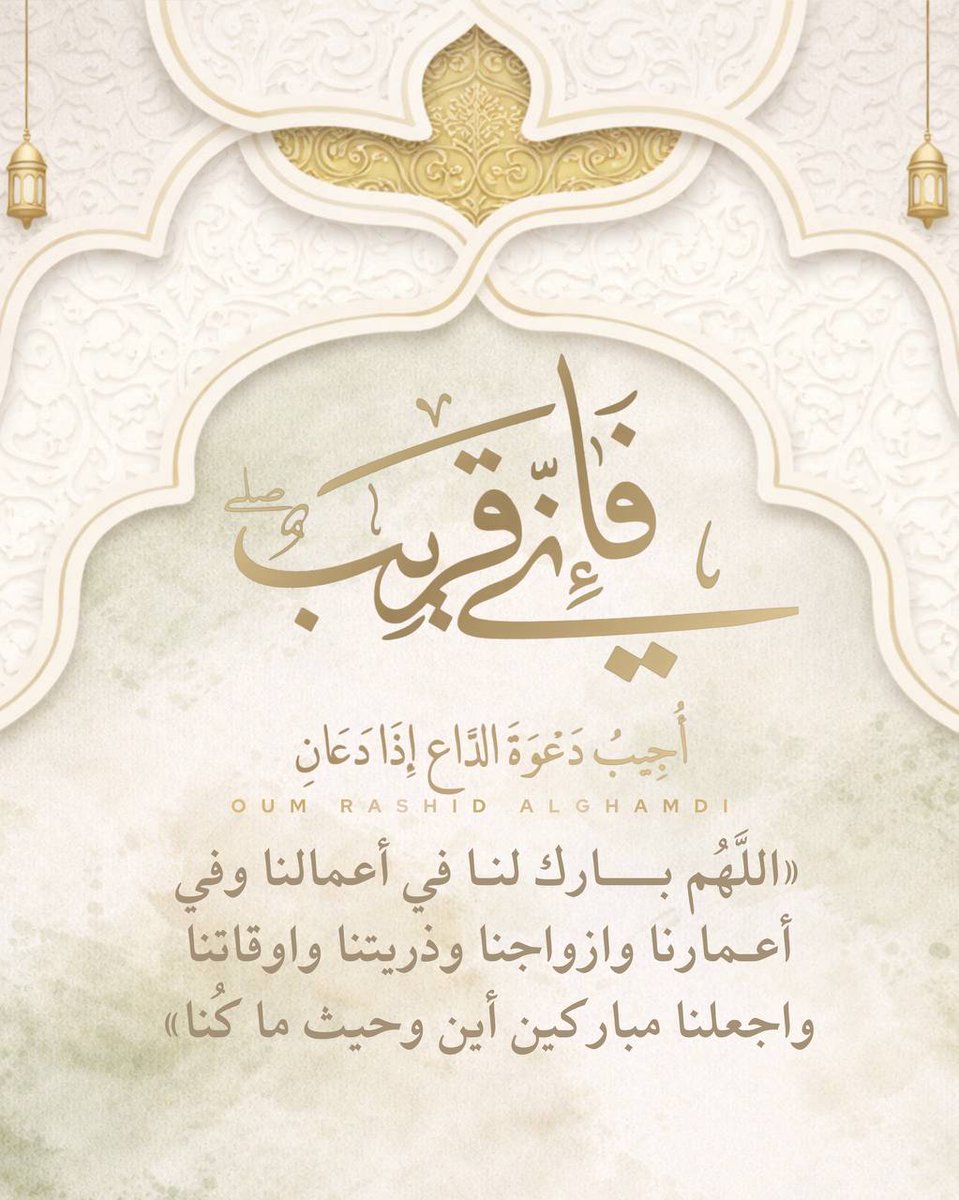 فَإِنِّي قَرِيبٌ ۖ
أُجِيبُ دَعْوَةَ الدَّاعِ إِذَا دَعَانِ
OUM RASHID ALGHAMDI
«اللَّهُم بــــارك لنـا في أعمالنا وفي
أعـمارنا وازواجنا وذريتنا واوقاتنا
واجعلنا مباركين أين وحيث ما كُنا»